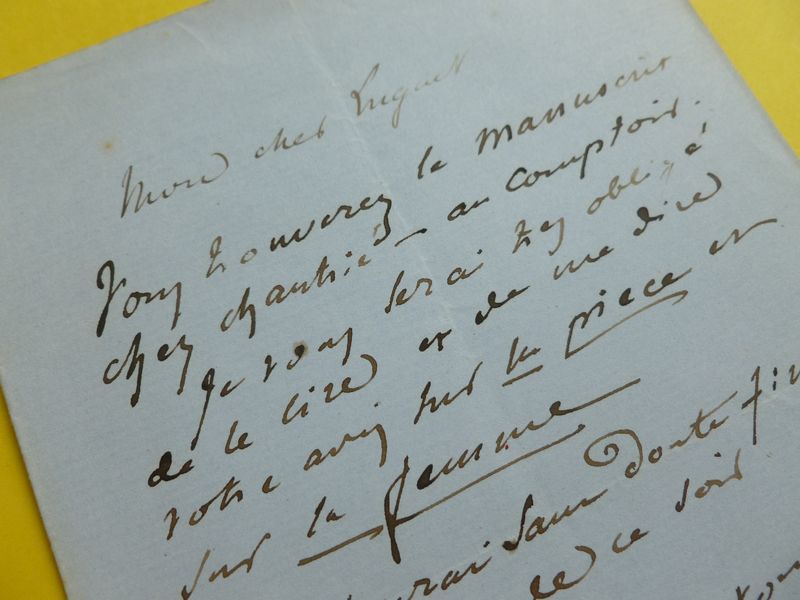 Mon cher Luguet
Vous trouverez le manuscrit
chez Chautié – au comptoir.
Je vous serai très obligé
de le lire et de me dire
votre avis sur la pièce et
sur la femme
sans doute
de ce soir